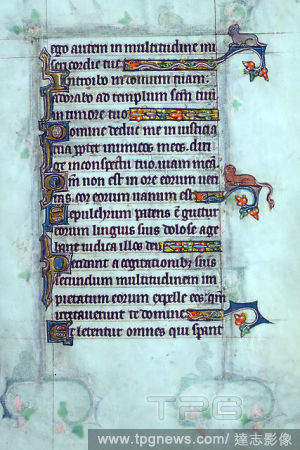 ego autem in multitudine mi
sericordie tue
Introibo in domum tuam:
adorabo ad templum scm tuu
in timore tuo
Domine deduc me in iusticia
tua ppter inimicos meos: diri
ge in conspectu tuo uiam mea
Qm non est in ore eorum ueri
tas: cor eorum uanum est
Sepulchrum patens e guttur
eorum linguis suis dolose age
bant iudica illos deus
Decidant a cogitationibz suis
secundum multitudinem im
pietatum eorum expelle eos: qm
irritauerunt te domine
Et letentur omnes qui sperant
TPG
www.tpgnews.com/ 達志影像